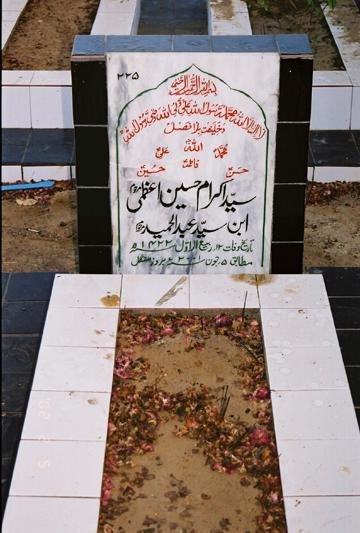 ۲۲۵
بسم اللہ الرحمن الرحیم
لا الہ الا اللہ محمد رسول اللہ علی ولی اللہ وصی رسول اللہ
وخلیفتہ بلا فصل
محمدؐ اللہ علیؑ
حسنؑ فاطمہؑ حسینؑ
سید اکرام حسین اعظمی
ابن سید عبد الحمید
تاریخ وفات ۱۲ ربیع الاول ۱۴۲۲ھ
مطابق ۵ جون ۲۰۰۱ء بروز منگل